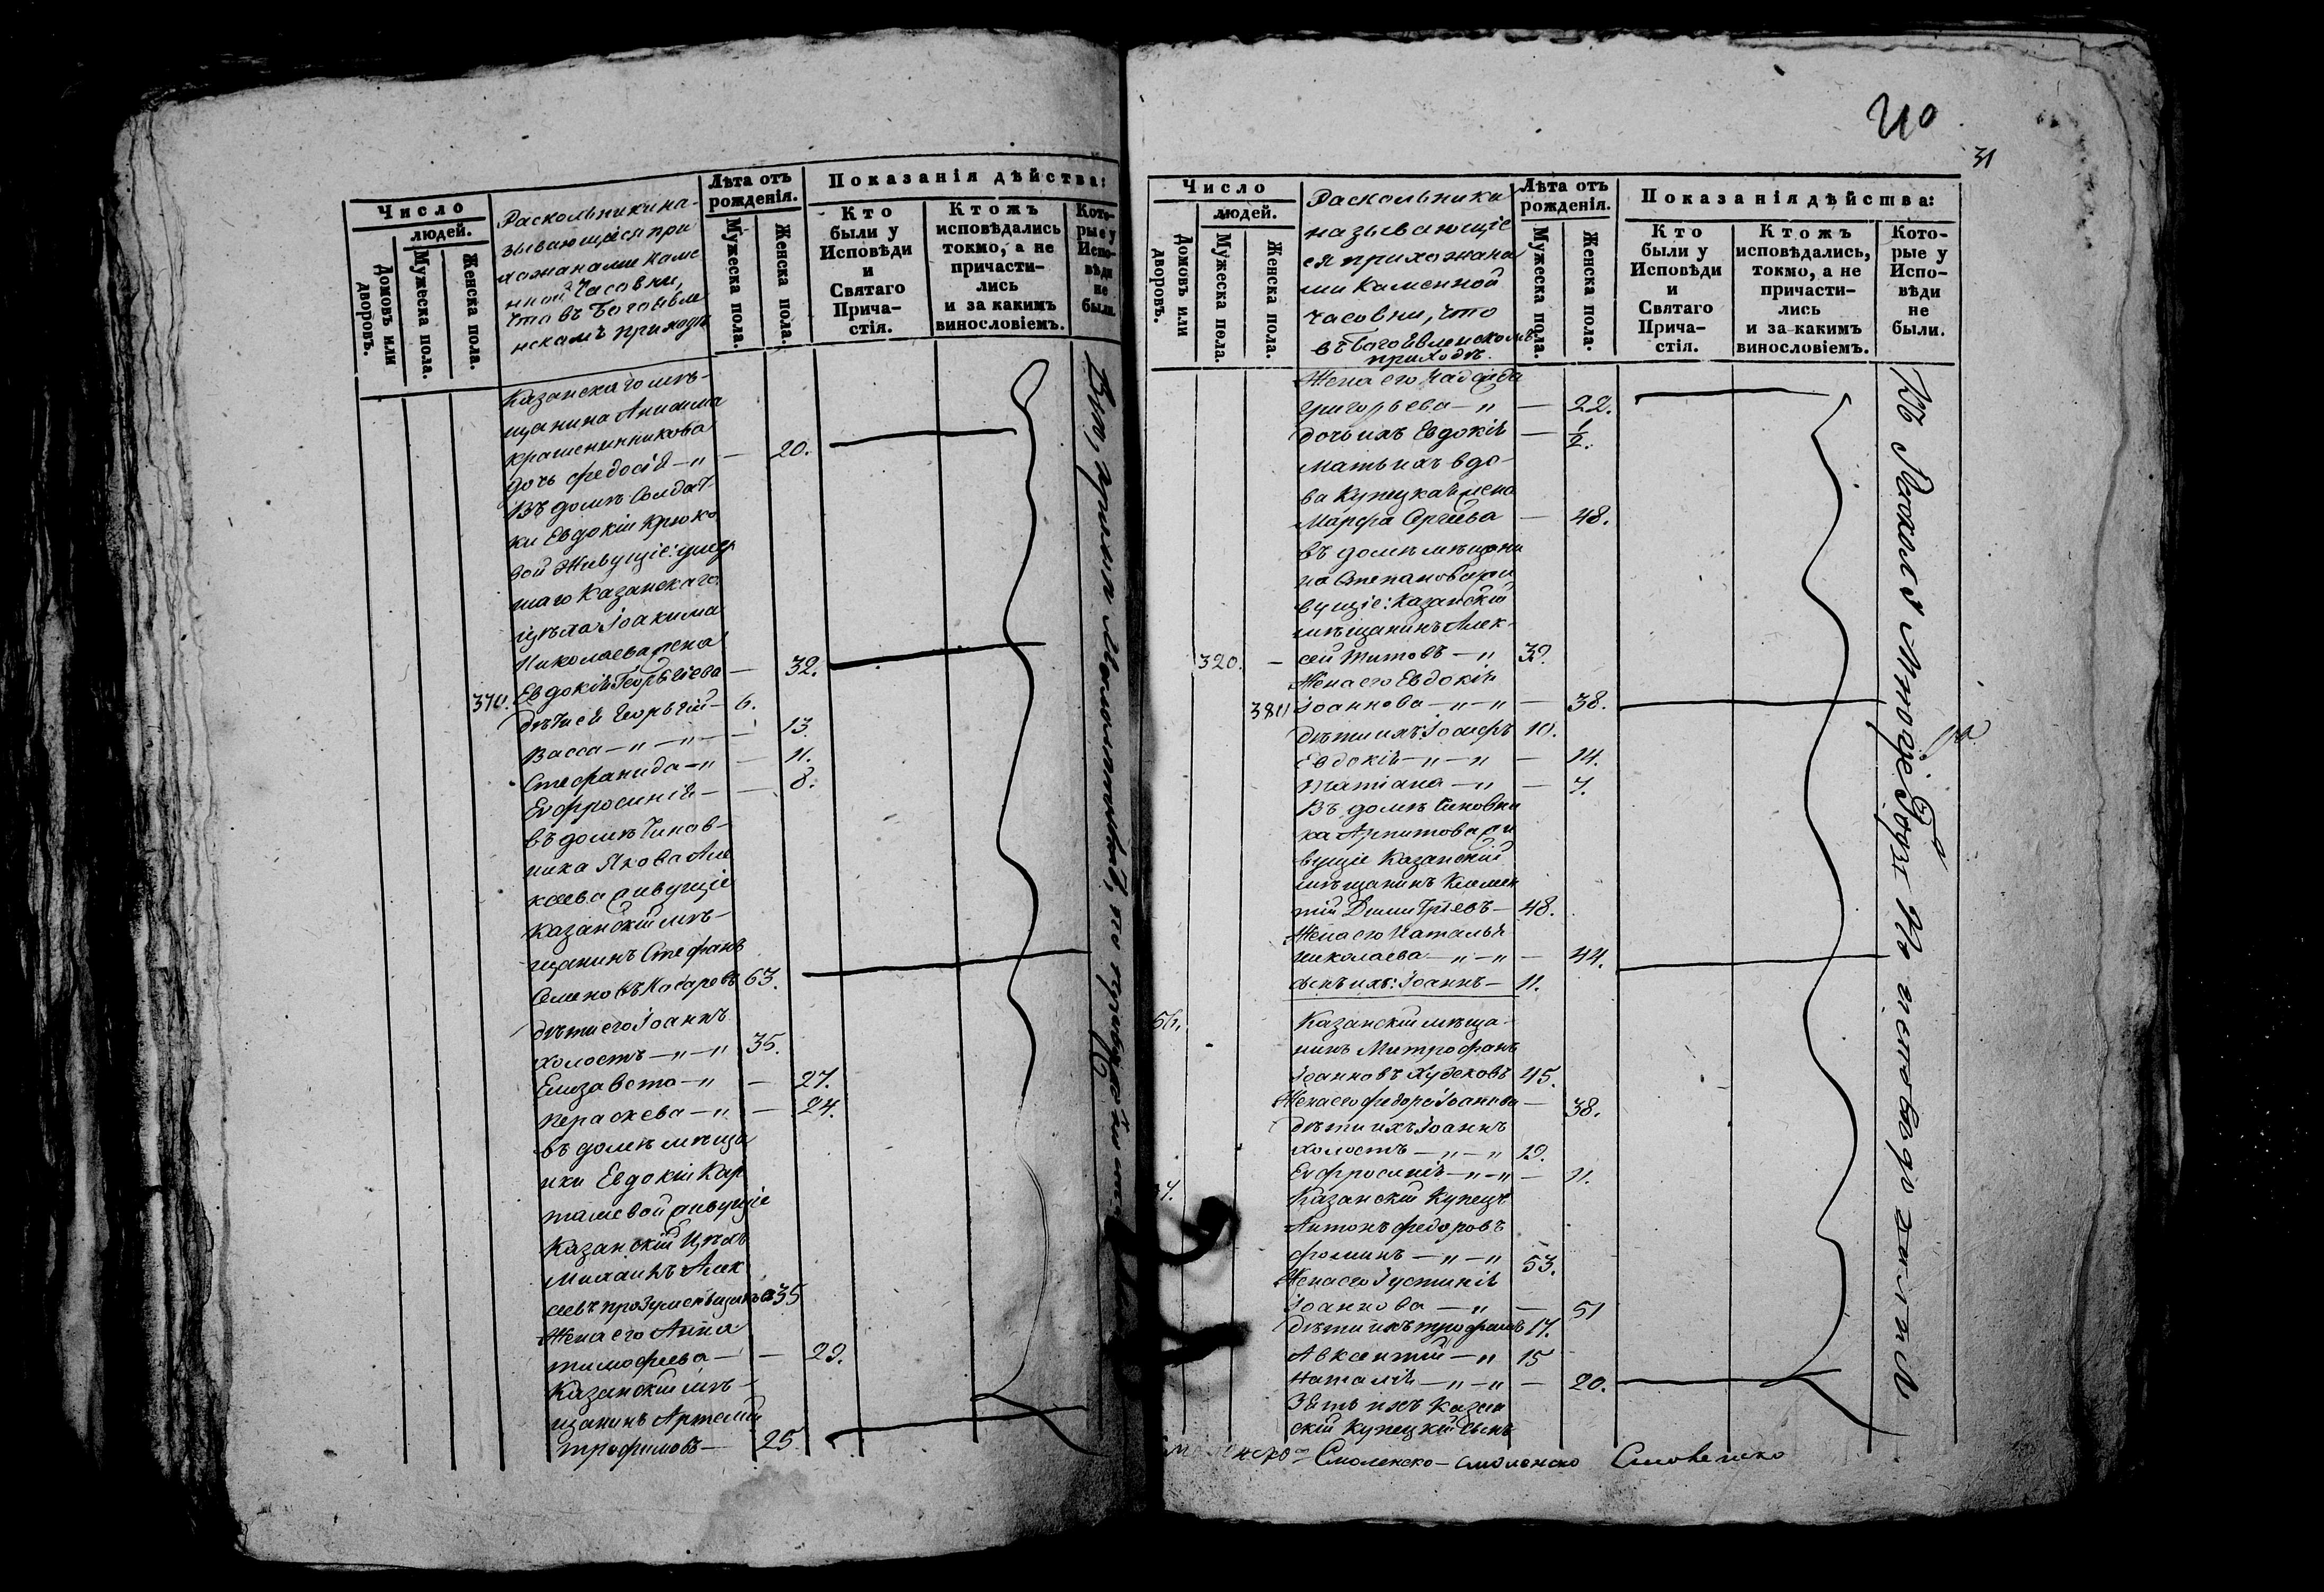 Число
людей.
Домовъ или дворовъ.
Мужеска пола.
Женска пола.
Раскольники на-
зывающіеся при
хожанами каме
нной Часовни,
что въ Богоявле
нскомъ приходѣ
Лѣта отъ рожденія.
Мужеска пола.
Женска пола.
Показанія дѣйства:
Кто были у Исповѣди и Святаго Прича-стія.
Ктожъ исповѣдались токмо, а не причасти-лись и за какимъ винословіемъ.
Кото-рые у Испо-вѣди не были.
Казанскаго мѣ-
щанина Анисима
крашенинникова
дочь Федосія — " — 20.
Въ домѣ Солдат
ки Евдокіи Крюко
вой Живущіе: умер
шаго Казанскаго
цѣха Іоакима
Николаева жена
370. Евдокія Георьгіева — 32.
дѣти ея Георьгій — 6.
Васса — " — " — 13.
Стефанида — " — 11.
Евфросинія — — 8.
въ домѣ Чинов-
ника Якова Але
кеева живущіе
Казанскій мѣ-
щанинъ Стефанъ
Семеновъ 63.
дѣти его Іоаннъ
холостъ — " — " 35.
Елизавета — " — 27.
Параскева — " — 24.
въ домѣ мѣща
нки Евдокіи Кар
ташевой живущіе
Казанскій Цѣха
Михаилъ Алек
35
Жена его Анна
тимофеева — — 29.
Казанскій мѣ-
щанинъ Артемій
трофимовъ — 25.
31
Число
людей.
Домовъ или дворовъ.
Мужеска пола.
Женска пола.
Раскольники
называющіе
ся прихожана
ми Каменной
часовни, что
въ Богоявленскомъ
приходѣ.
Лѣта отъ рожденія.
Мужеска пола.
Женска пола.
Показанія дѣйства:
Кто были у Исповѣди и Святаго Прича-стія.
Ктожъ исповѣдались, токмо, а не причасти-лись и за какимъ винословіемъ.
Кото-рые у Испо-вѣди не были.
Жена его Надежда
Григорьева — " — 22.
дочь ихъ Евдокія — 1/2.
Мать ихъ вдо-
ва Купецкая жена
Марфа Сергеева — 48.
въ домѣ мѣщани
на Степанова жи
вущіе: Казанскій
мѣщанинъ Алек-
320. — сей Титовъ — " 39.
Жена его Евдокія
380 Іоаннова — " — " — 38.
дѣти ихъ: Іосифъ 10.
Евдокія — " — " — 14.
татіана — " — 7.
Въ домѣ Чиновни
ка Архитова жи
вущіе Казанскій
мѣщанинъ Климен
тій Димитріевъ — 48.
Жена его Наталья
николаева — " — " — 44.
сынъ ихъ: Іоаннъ — 11.
56. Казанскій мѣща-
нинъ Митрофанъ
Іоанновъ Худековъ 45.
Жена его Федора Іоаннова — 38.
дѣти ихъ Іоаннъ
холостъ — " — " 19.
Евфросинія — " — " — 11.
Казанскій Купецъ
Антонъ Федоровъ
фоминъ — " — " 53.
Жена его Іустинія
Іоаннова — " — 51
дѣти ихъ трофимъ 17.
Авксентій — " 15
Наталія — " — " — 20.
Зять ихъ Казан
скій купецкій сынъ
Смоленско — смоленско Смоленско